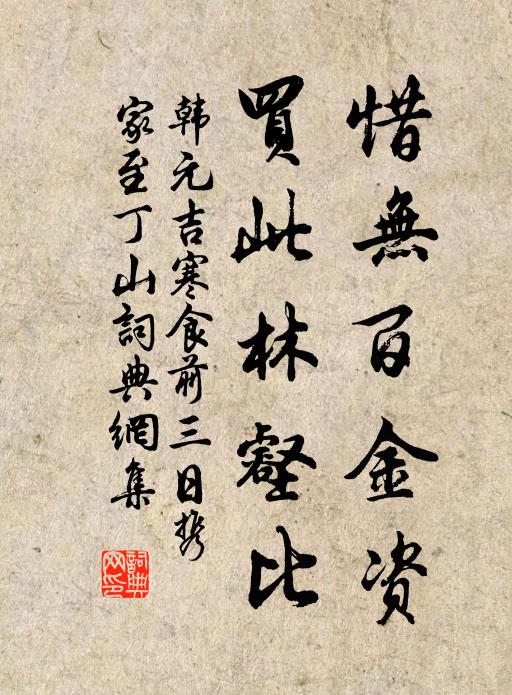 惜無百金資
買此林壑比
韩元吉寒食前三日携
家至丁山詞典網集
詞典
网印